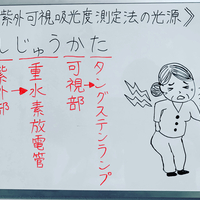 紫外可視吸光度測定法の光源》
しじゅうかた
紫外部→
重水素放電管
可視部→
タングステンランプ